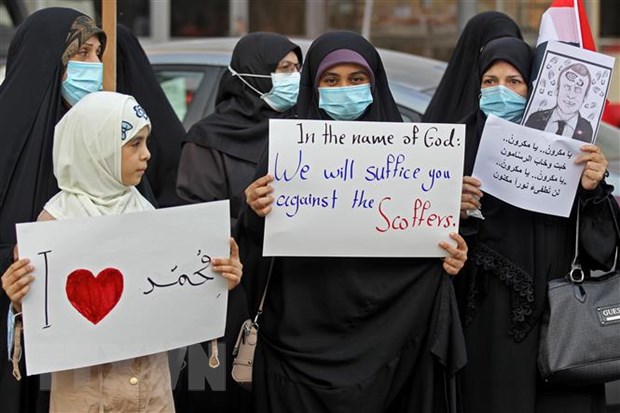 I ❤ مُحمَد
In the name of God:
We will suffice you
against the Scoffers.
يا مكرون.. يا مكرون..
خبت وخاب الرسامون
يا مكرون.. يا مكرون..
لن تطفىء نورا مكنون
GUESS